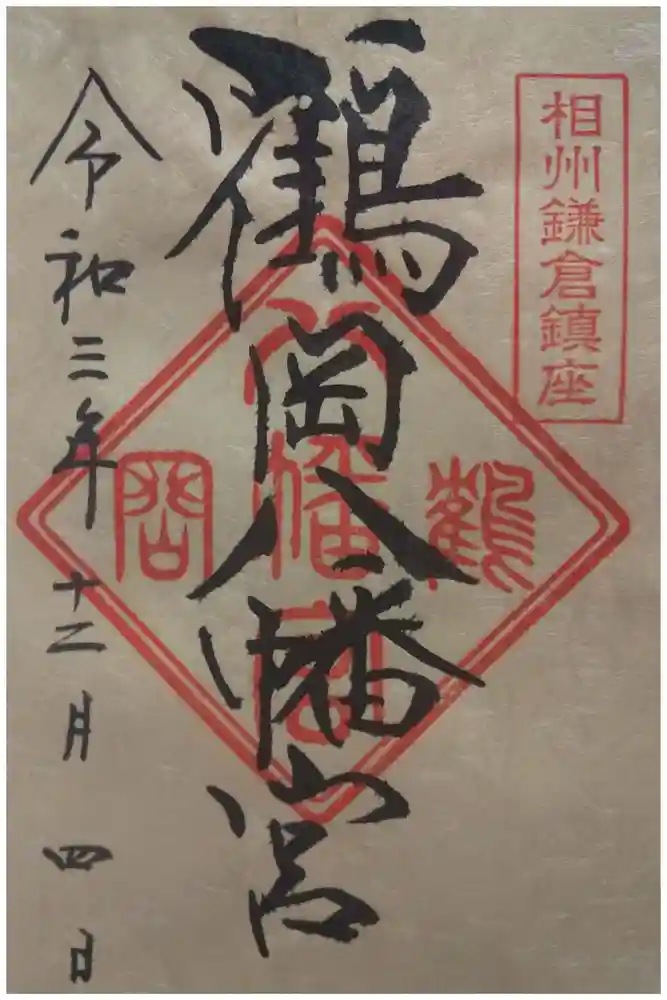 相州鎌倉鎮座
鶴岡八幡宮
鶴
岡
八幡宮
令和三年十二月四日